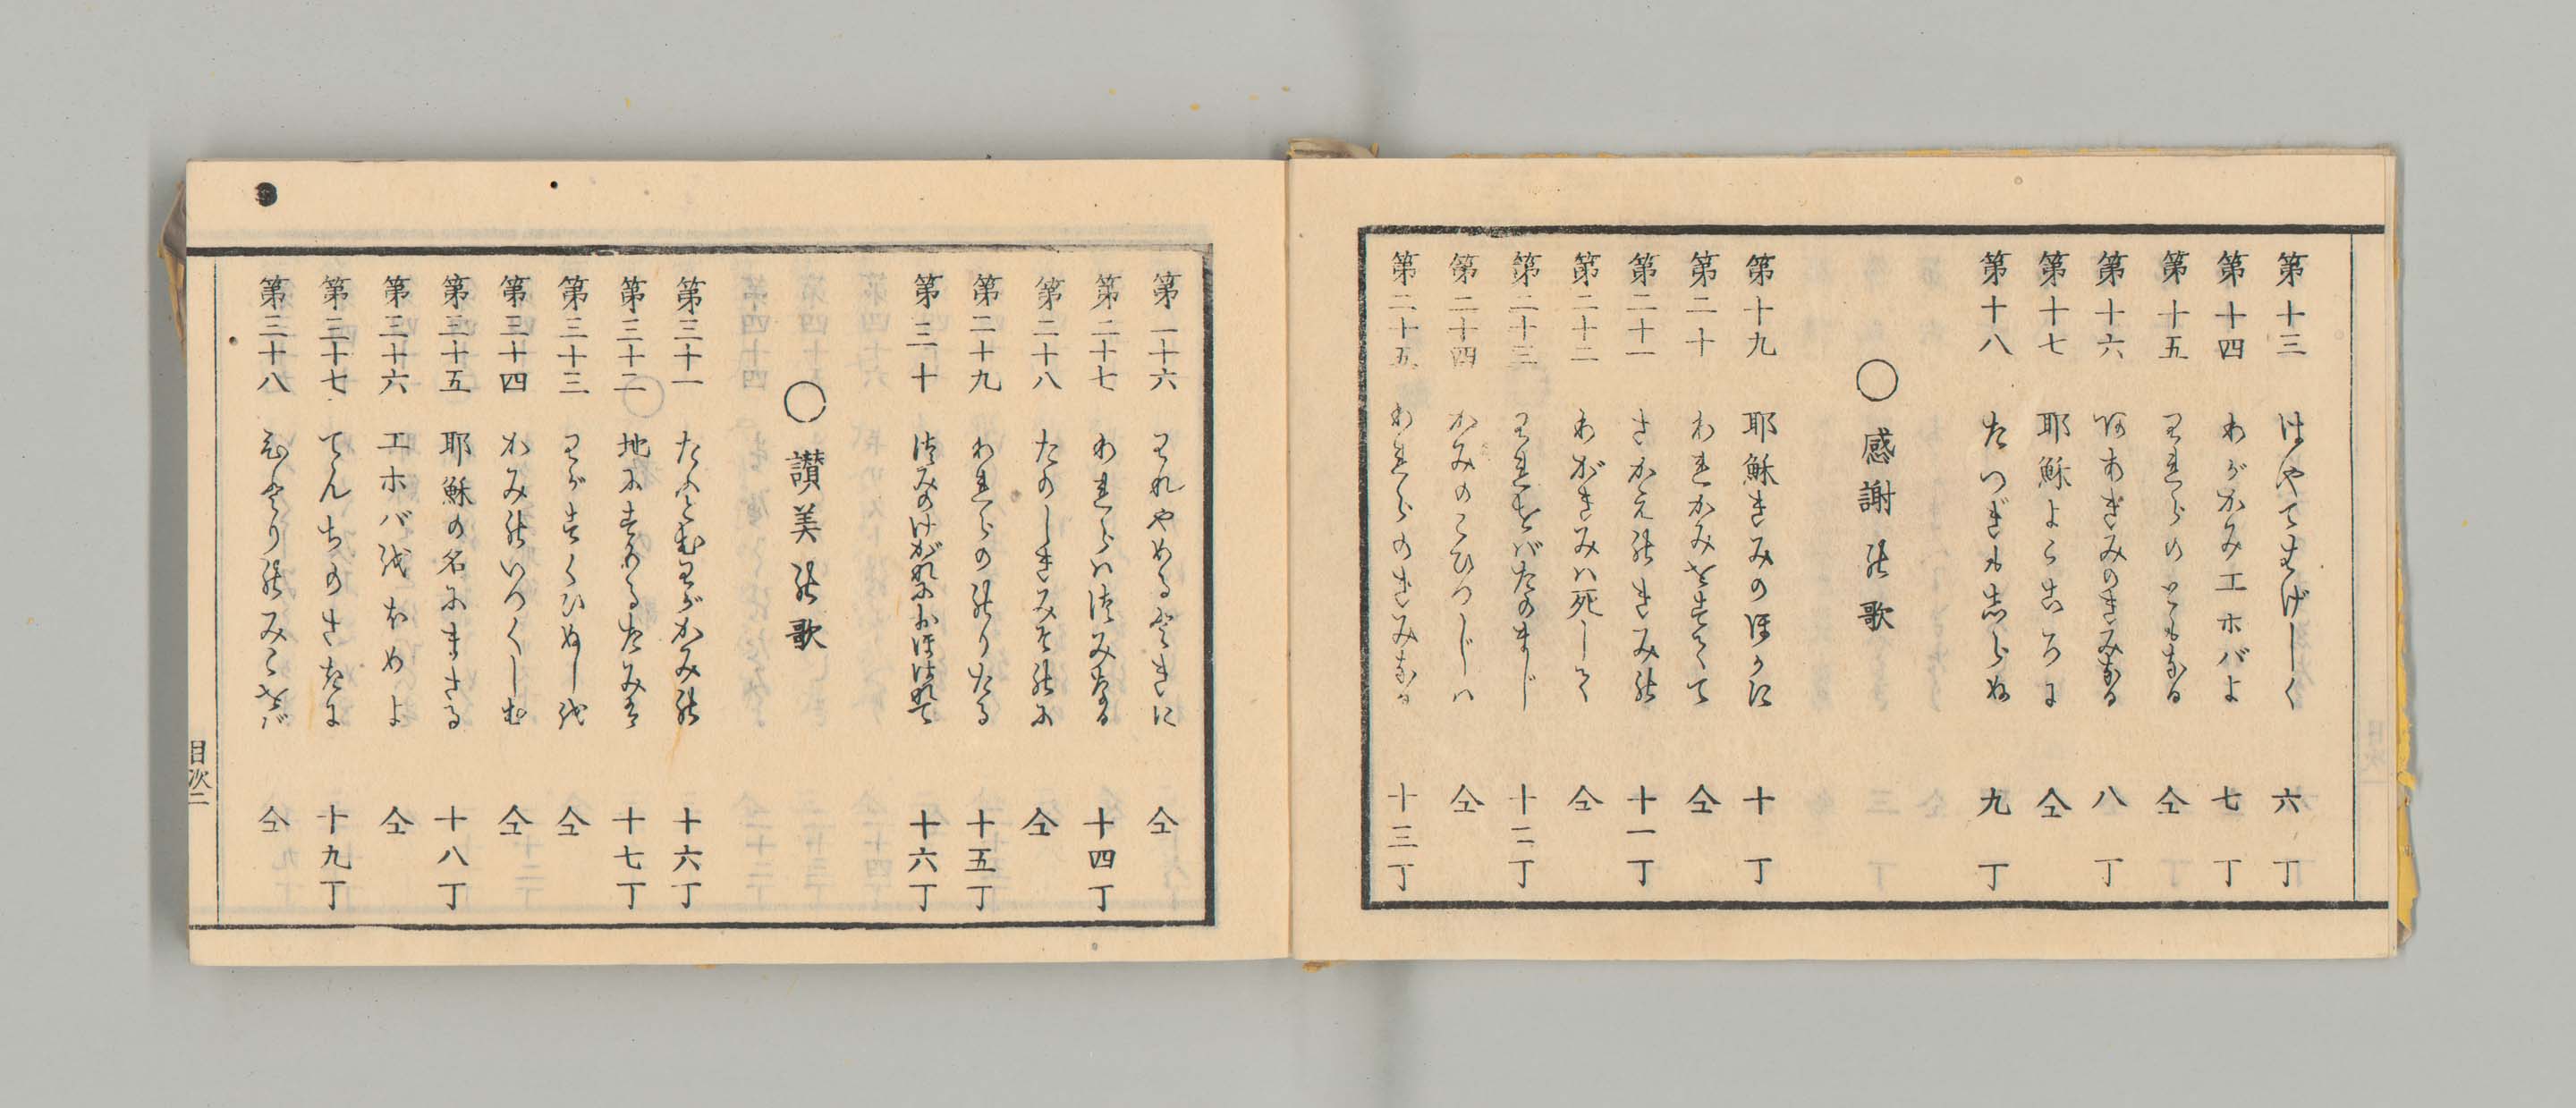 第十三 はやてはげしく 六丁
第十四 わがかみエホバよ 七丁
第十五 われらのともなる 仝
第十六 あぎみのきみなる 八丁
第十七 耶穌よこゝろに 仝
第十八 たつぎもしらぬ 九丁
○感謝の歌
第十九 耶穌きみのほかに 十丁
第二十 われかみをすてゝ 仝
第二十一 さかえのきみの 十一丁
第二十二 わがきみハ死して 仝
第二十三 われをばたのまじ 十二丁
第二十四 かみのこひつじハ 仝
第二十五 われらのきみなる 十三丁
第二十六 われやめるときに 仝
第二十七 われらハつみなる 十四丁
第二十八 たのしきみその に 仝
第二十九 われらののりたる 十五丁
第三十 つみのけがれにおほはれて 十六丁
○讃美の歌
第三十一 たふとむわがかみの 十六丁
第三十二 地にすめるたみハ 十七丁
第三十三 わがすくひぬしを 仝
第三十四 かみのいつくしむ 仝
第三十五 耶穌の名にまさる 十八丁
第三十六 エホバをほめよ 仝
第三十七 てんちのさたに 十九丁
第三十八 ひとりのみこをバ 仝
目次二